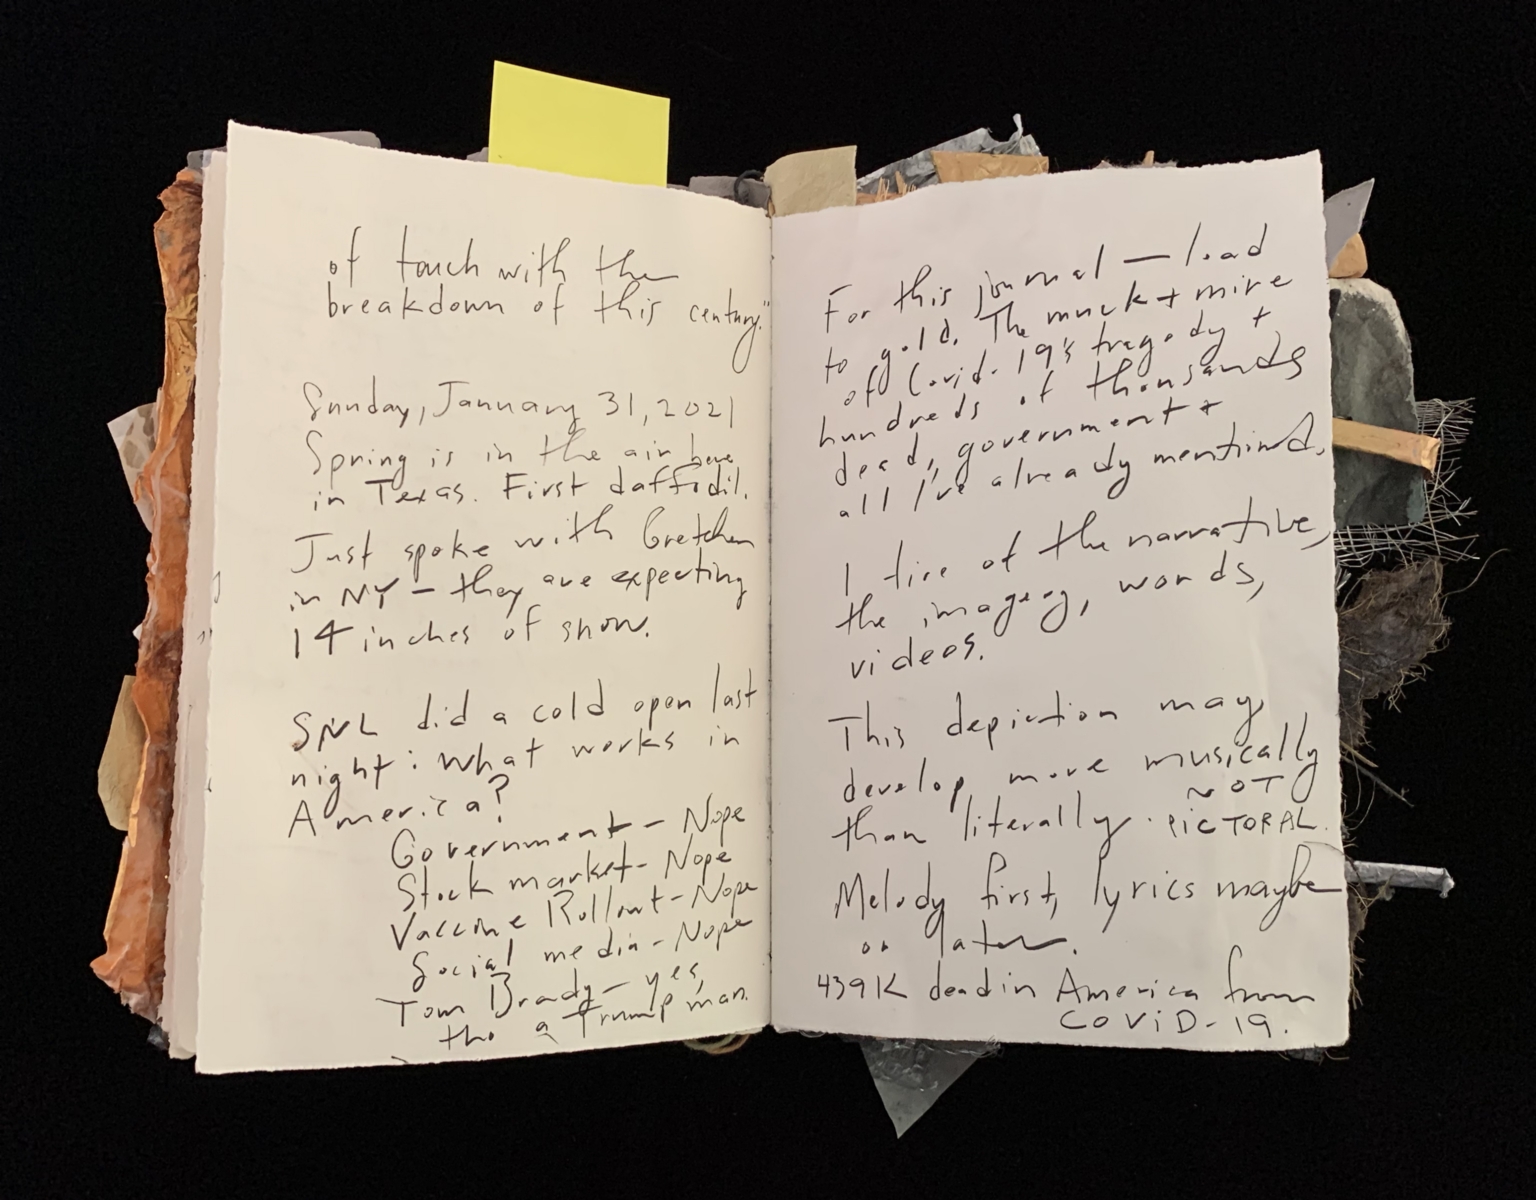 of touch with the
breakdown of this century."
Sunday, January 31, 2021
Spring is in the air here
in Texas. First daffodil.
Just spoke with Gretchen
in NY - they are expecting
14 inches of snow.
SNL did a cold open last
night: What works in
America?
Government - Nope
Stock market - Nope
Vaccine Rollout - Nope
Social media - Nope
Tom Brady - yes,
tho a Trump man.
For this journal — lead
to gold. The muck + mire
of Covid-19's tragedy +
hundreds of thousands
dead, government +
all I've already mentioned.
I tire of the narrative,
the imagery, words,
videos.
This depiction may
develop more musically
than literally. NOT PICTORAL.
Melody first, lyrics maybe
or later.
439K dead in America from
COVID-19.